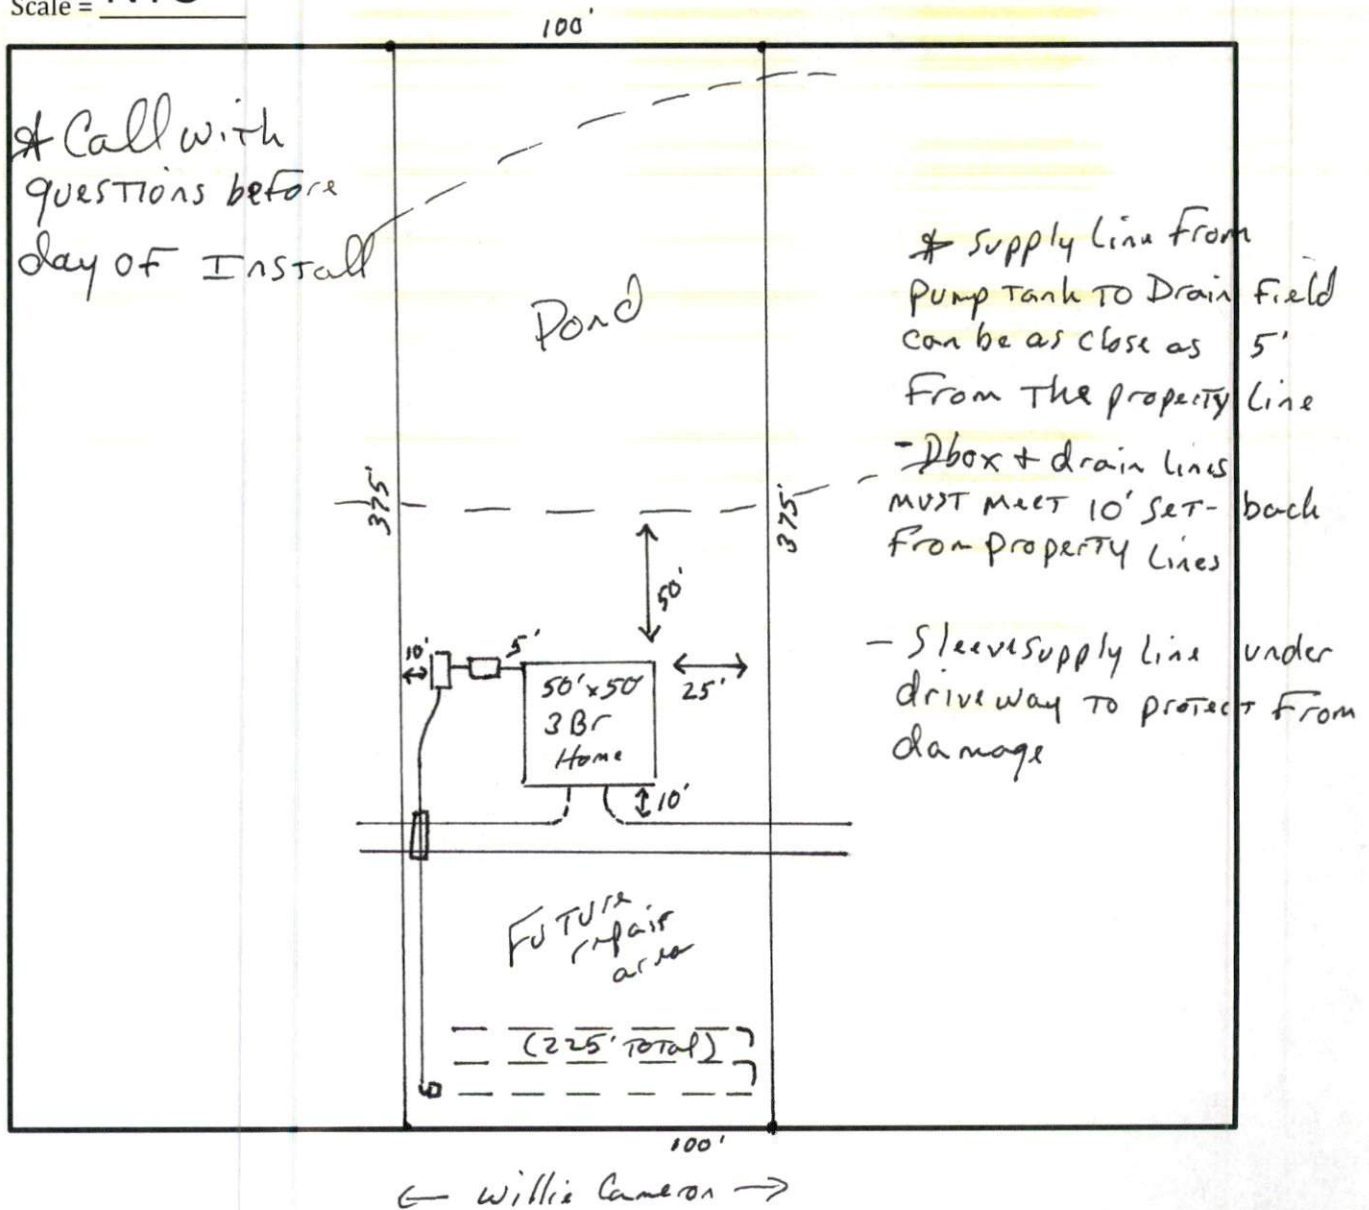 Scale = NTS
100'
* Call with
questions before
day of Install
Pond
* Supply line from
pump tank to Drain field
can be as close as 5'
from the property line
- Dbox + drain lines
must meet 10' set-back
from property lines
- Sleeve supply line under
driveway to protect from
damage
375'
375'
50'
10'
5'
25'
50'x50'
3 Br
Home
10'
Future
repair
area
(225' Total)
100'
← Willie Cameron →